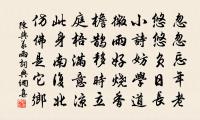 忽忽忘年老
悠悠負日長
小詩妨學道
微雨好燒香
檐鵲移時立
庭梧滿意涼
此身南復北
仿佛是它鄉
陳與義雨詞典網集